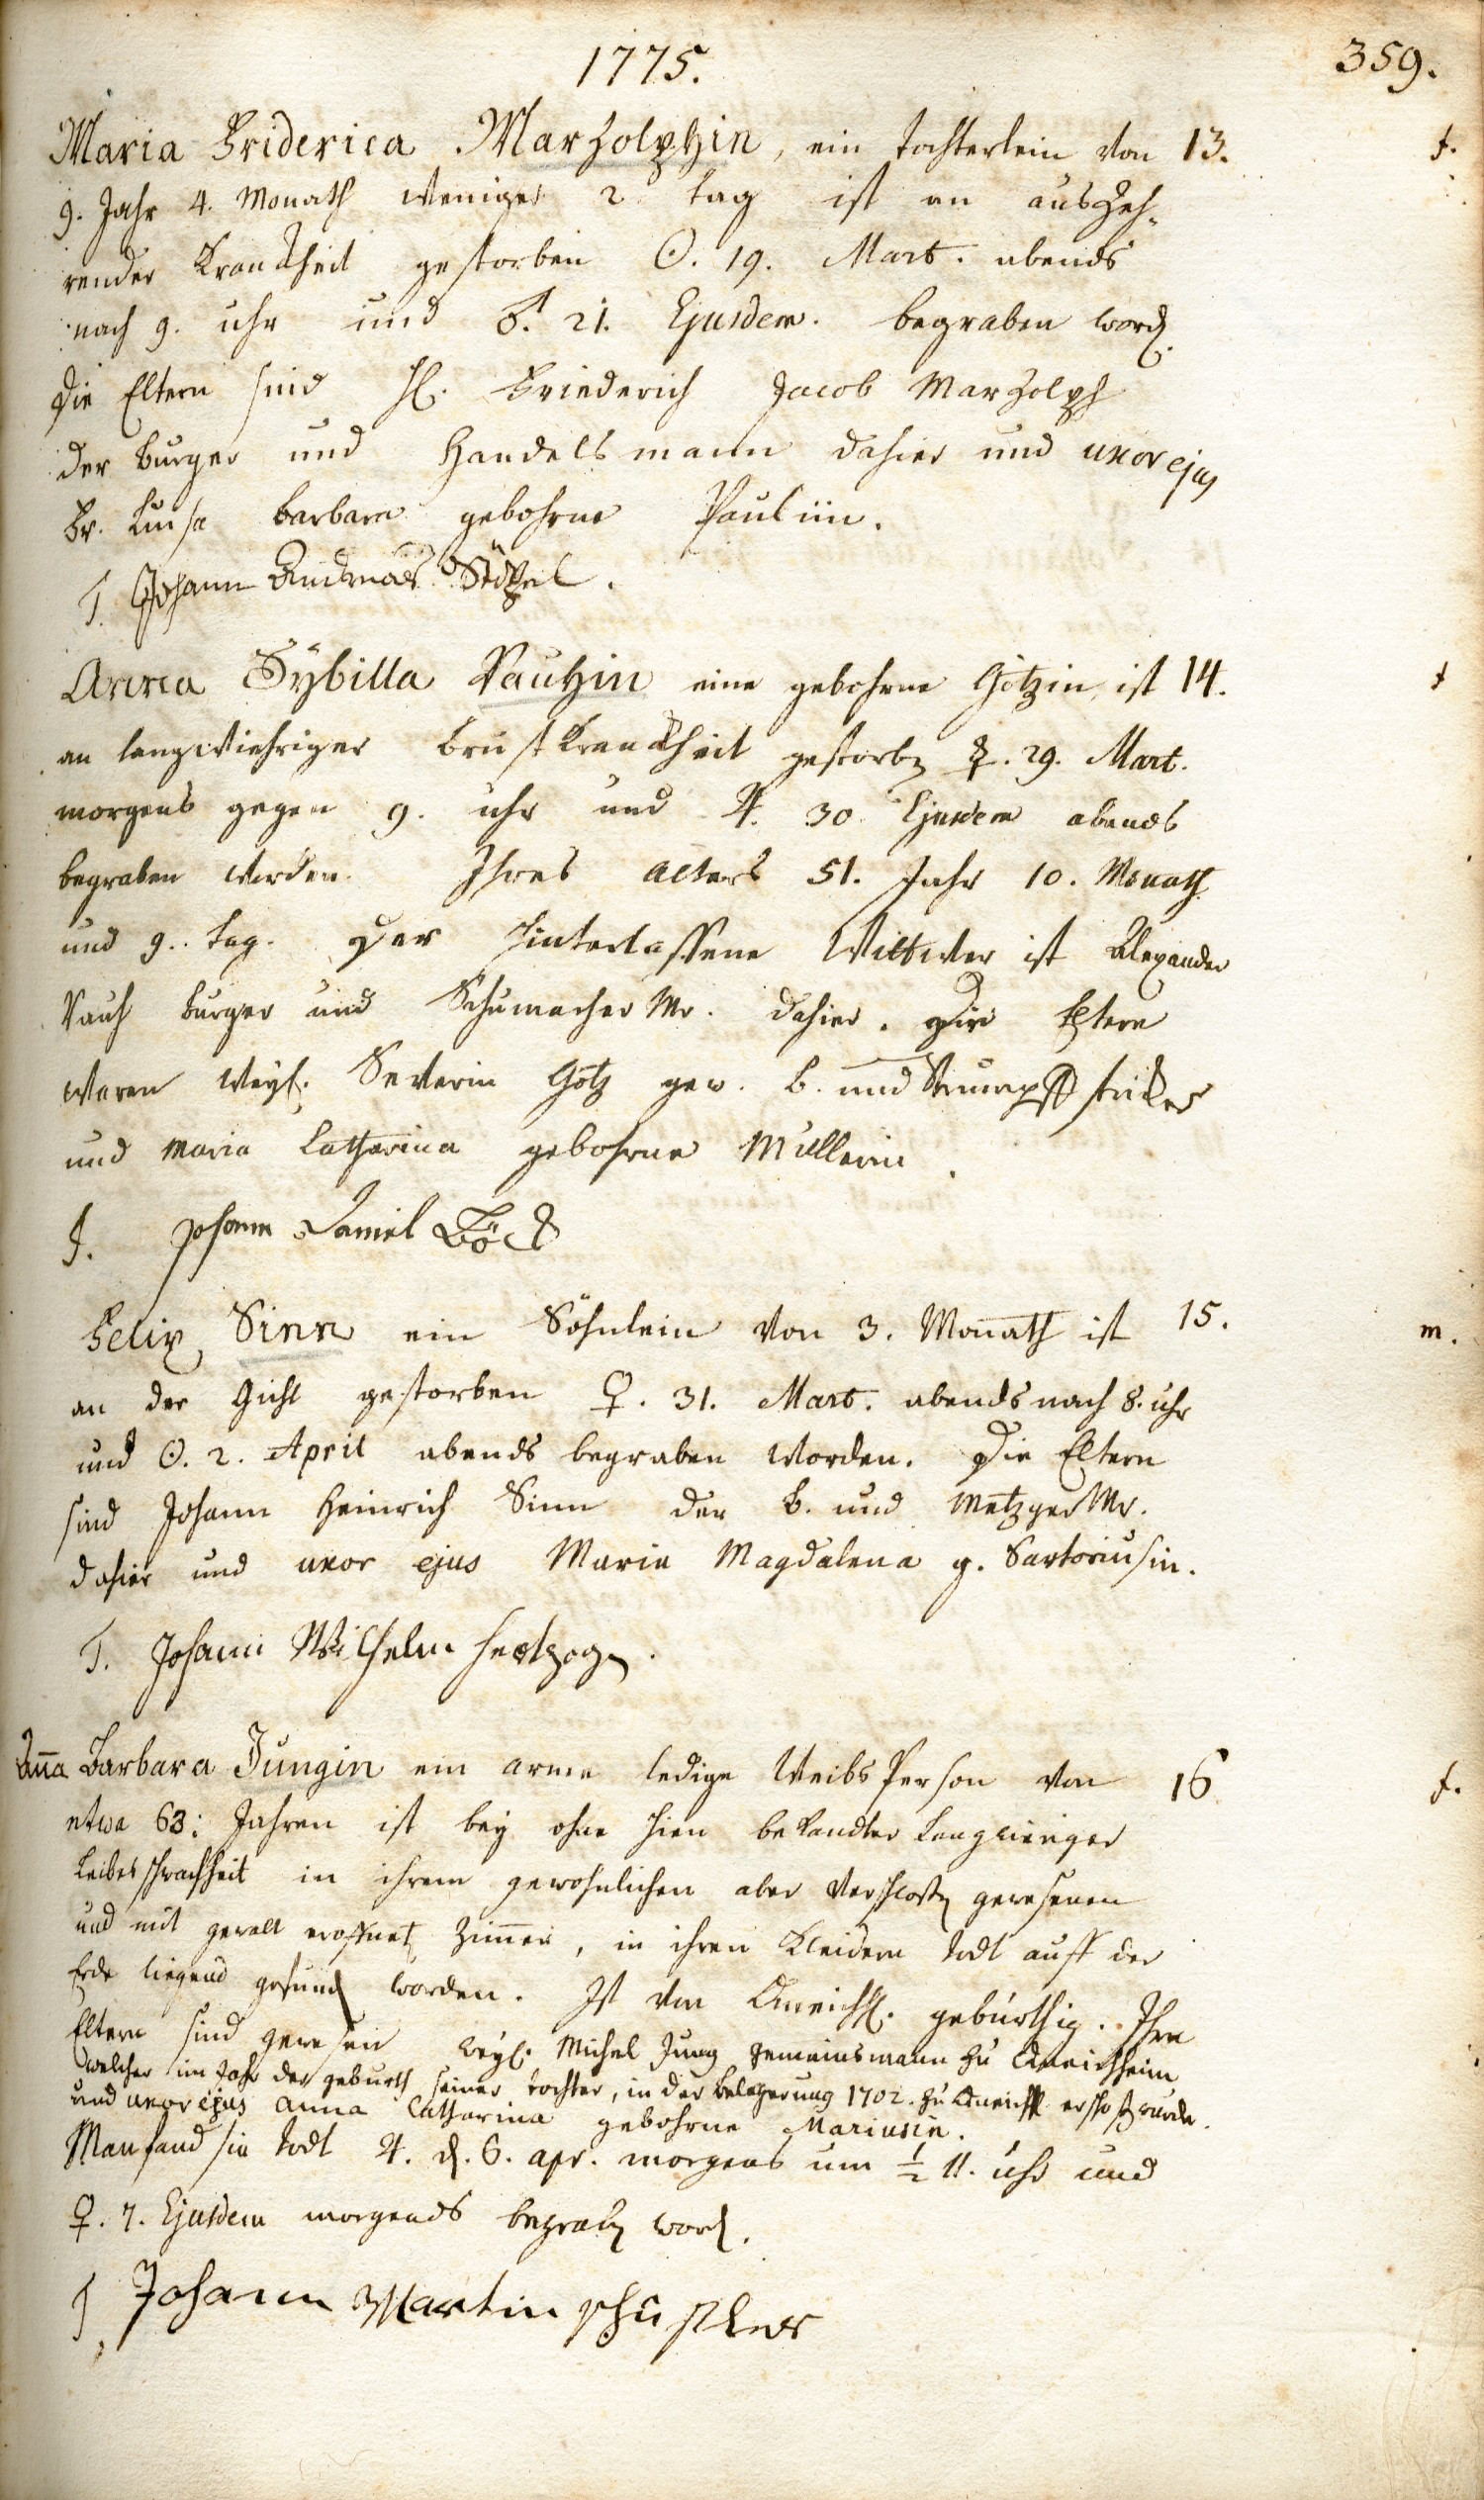 1775.
359.
Maria Friderica Marzolphin, ein tochterlein von 13. f.
9. Jahr 4. Monath weniger 2 tag ist an auszeh-
render Kranckheit gestorben ☉. 19. Mart. abends
nach 9. uhr und ♂. 21. Ejusdem. begraben word.
Die Eltern sind H. Friederich Jacob Marzolph
der burger und Handelsmann dahier und uxor ejus
Fr. Luisa barbara gebohrne Paulin.
T. Johann Andreas Stötzel.
Anna Sybilla Rauhin eine gebohrne Götzin, ist 14. f
an langwiehriger brust Kranckheit gestorben ☿. 29. Mart.
morgens gegen 9. uhr und ♃. 30 Ejusdem abends
begraben worden. Ihres alters 51. Jahr 10. Monath
und 9. tag. Der hinterlassene Wittwer ist Alexander
Rauh burger und Schumacher Mr. dahier. Die Eltern
waren weyl. Severin Götz gew. b. und Strumpff stricker
und Maria Catharina gebohrne Müllerin.
T. Johann Daniel Böck
Felix Sinn ein Söhnlein von 3. Monath ist 15. m.
an der Gicht gestorben ♀. 31. Mart. abends nach 8. uhr
und ☉. 2. April abends begraben worden. Die Eltern
sind Johann Heinrich Sinn der b. und Metzger Mr.
dahier und uxor ejus Maria Magdalena g. Sartoriusin.
T. Johann Wilhelm Hertzog.
Aña Barbara Jungin ein arme ledige Weibs Person von 16 f.
etwa 63: Jahren ist bey ohne hien bekandter langwieriger
Leibes schwachheit in ihrem gewohnlichen aber verschlossen gewesenen
und mit gewalt eroffnet Zim̄er, in ihren Kleidern todt auff der
Erde liegend gefund worden. Ist von Queichh. gebürthig. Ihre
Eltern sind gewesen weyl. Michel Jung gemeinsmann zu Queichheim
welcher im Jahr der geburth seiner tochter, in der belagerung 1702. zu Queichh. erschossen wurde.
und uxor ejus anna Catharina gebohrne Mariusin.
Man fand sie todt ♃. d. 6. apr. morgens um ½ 11. uhr und
♀. 7. Ejusdem morgends begraben word.
T Johann Martin Schuster